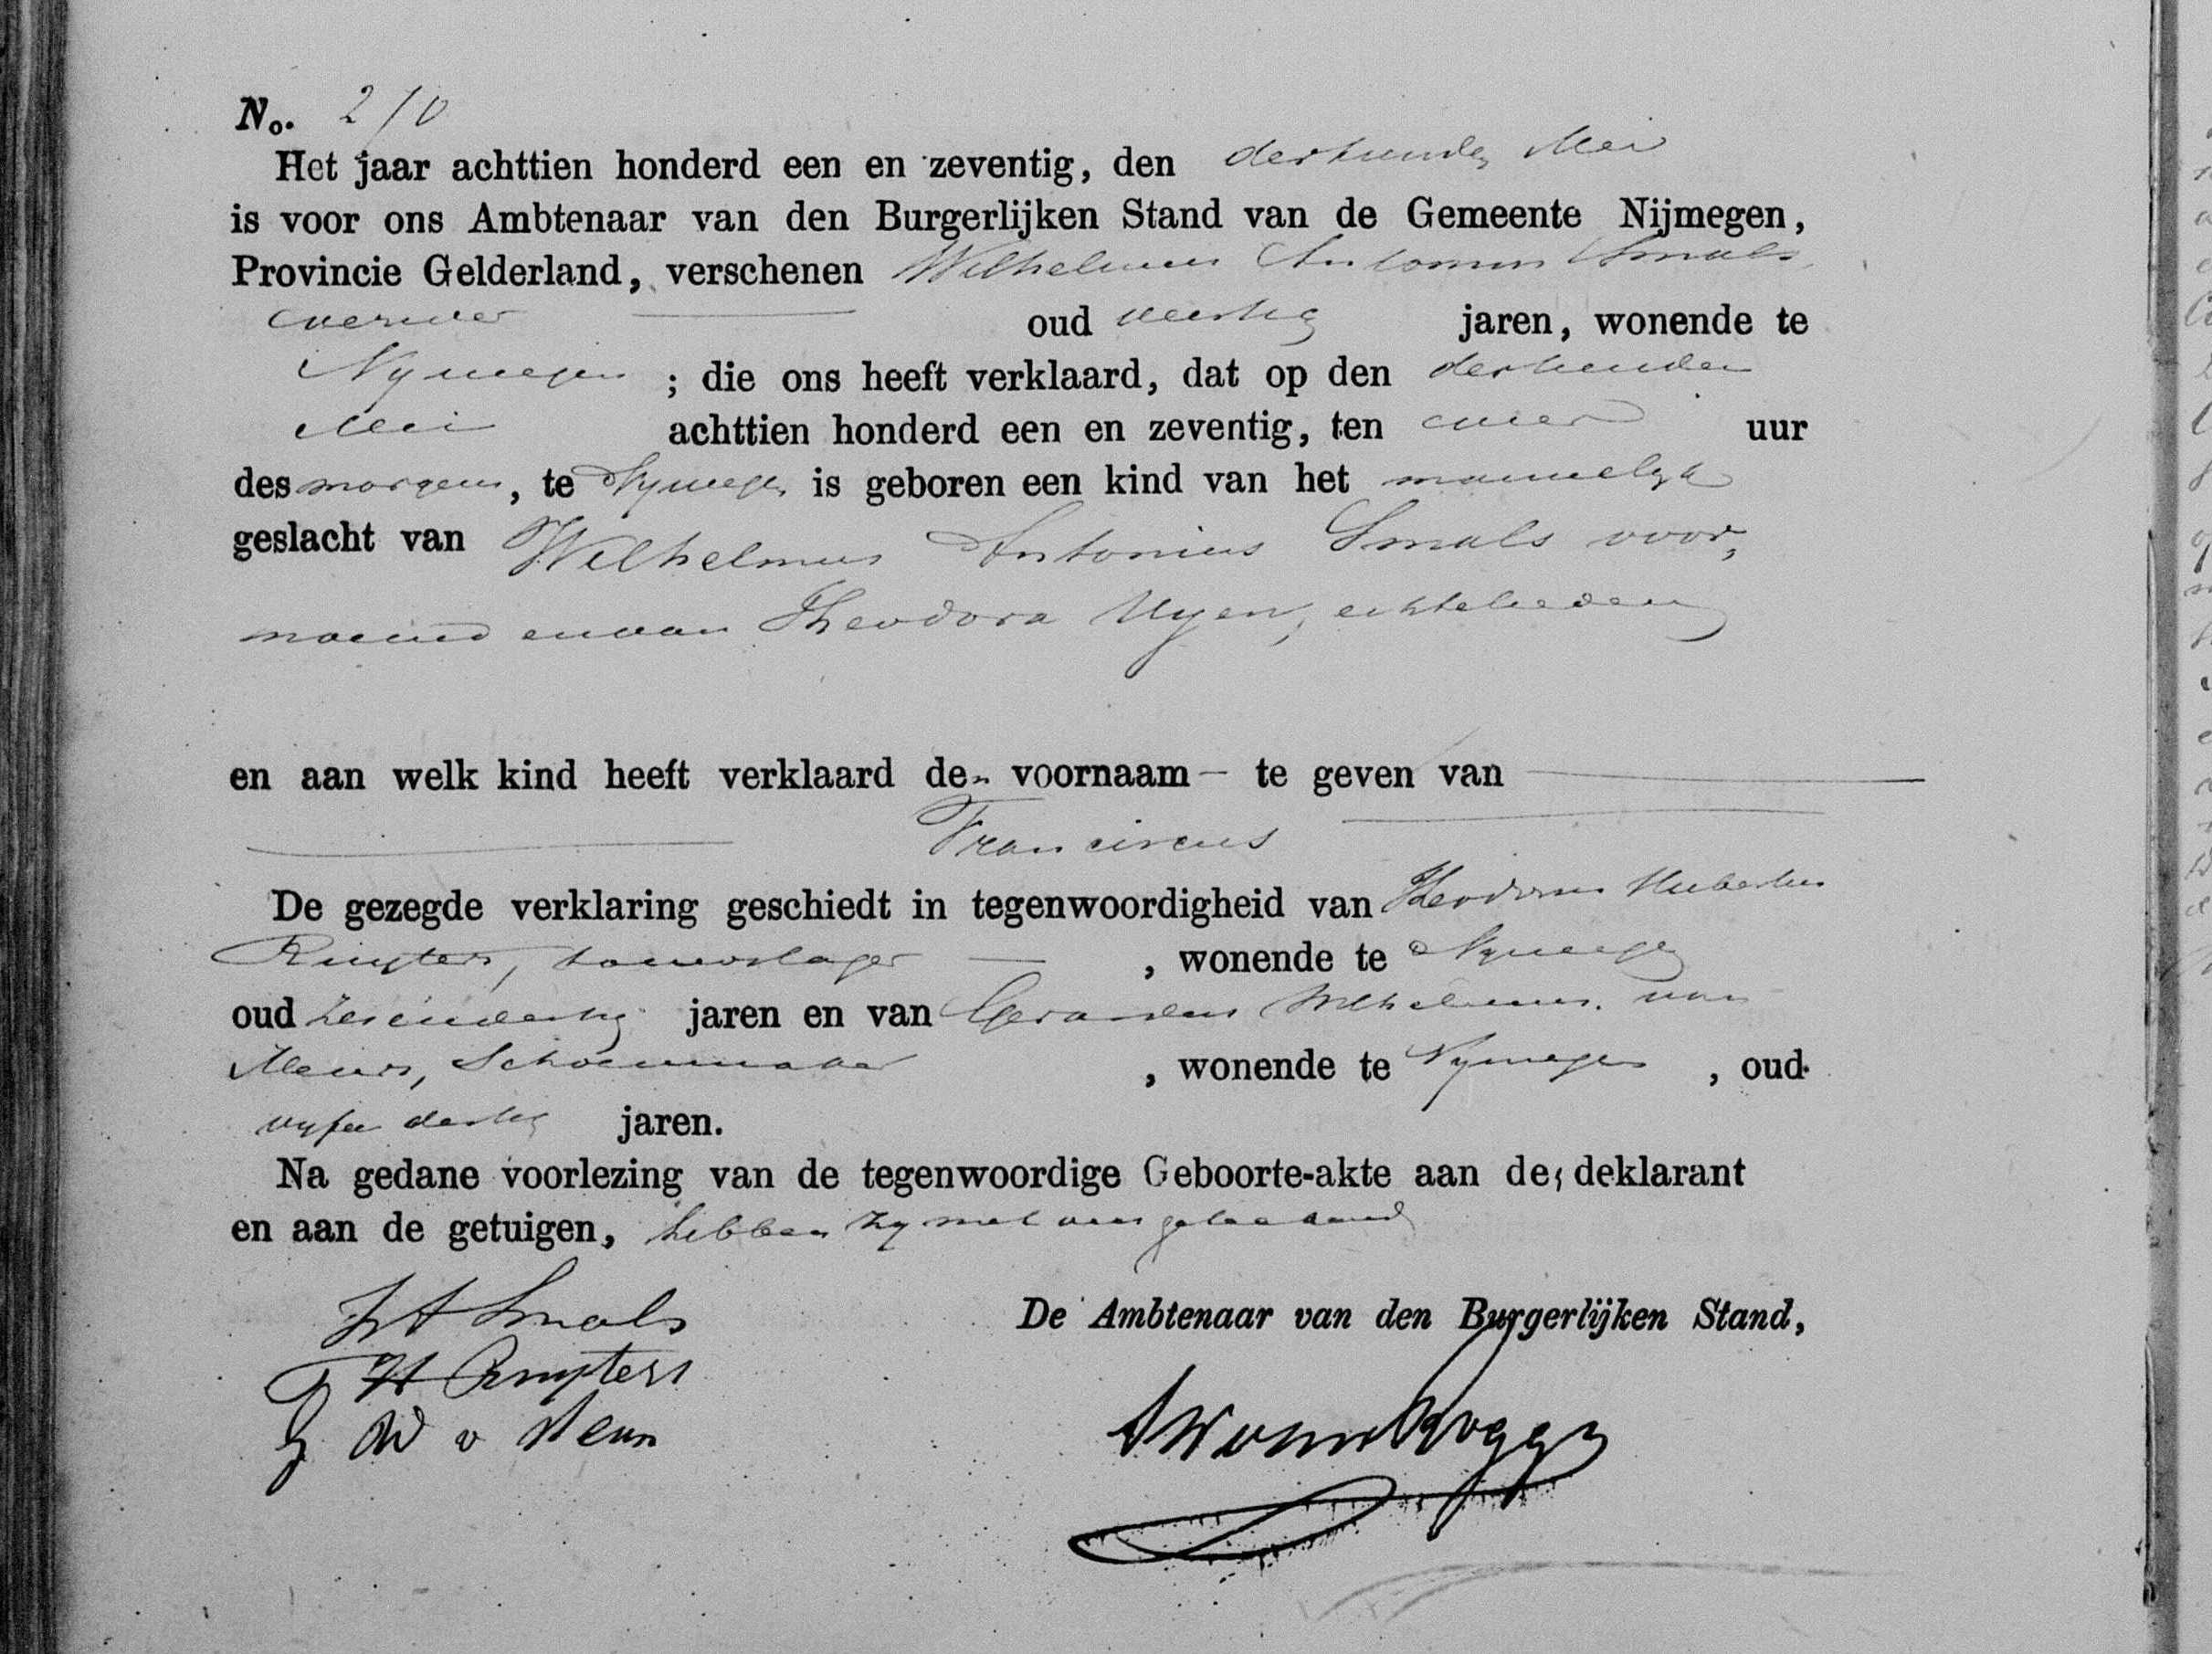 No. 210
Het jaar achttien honderd een en zeventig, den dertienden Mei
is voor ons Ambtenaar van den Burgerlijken Stand van de Gemeente Nijmegen,
Provincie Gelderland, verschenen Wilhelmus Antonius Smals
oud veertig jaren, wonende te
Nymegen ; die ons heeft verklaard, dat op den dertienden
Mei achttien honderd een en zeventig, ten uur
des morgens, te Nymegen is geboren een kind van het mannelyk
geslacht van Wilhelmus Antonius Smals voor,
noemd en van Theodora Uyen, echtelieden
en aan welk kind heeft verklaard den voornaam — te geven van —
Franciscus
De gezegde verklaring geschiedt in tegenwoordigheid van Theodorus Hubertus
Ruyters, touwslager — , wonende te Nymegen
oud zesendertig jaren en van Gerardus Wilhelmus van
Meurs, Schoenmaker , wonende te Nymegen , oud
vyfendertig jaren.
Na gedane voorlezing van de tegenwoordige Geboorte-akte aan den deklarant
en aan de getuigen, hebben zy met ons geteekend
De Ambtenaar van den Burgerlijken Stand,
W A Smals
T H Ruyters
G W v Meurs